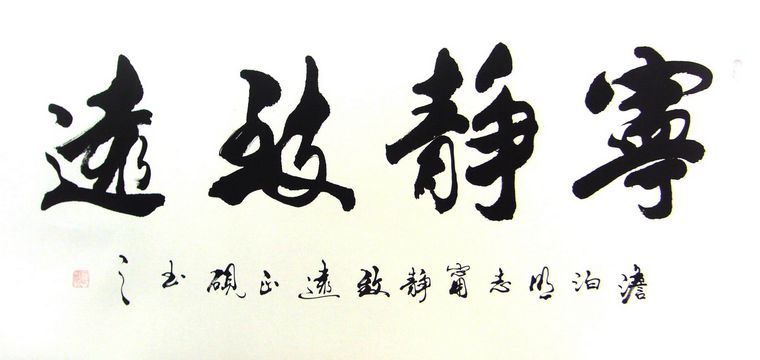 寧靜致遠
澹泊明志甯靜致遠正硯書之